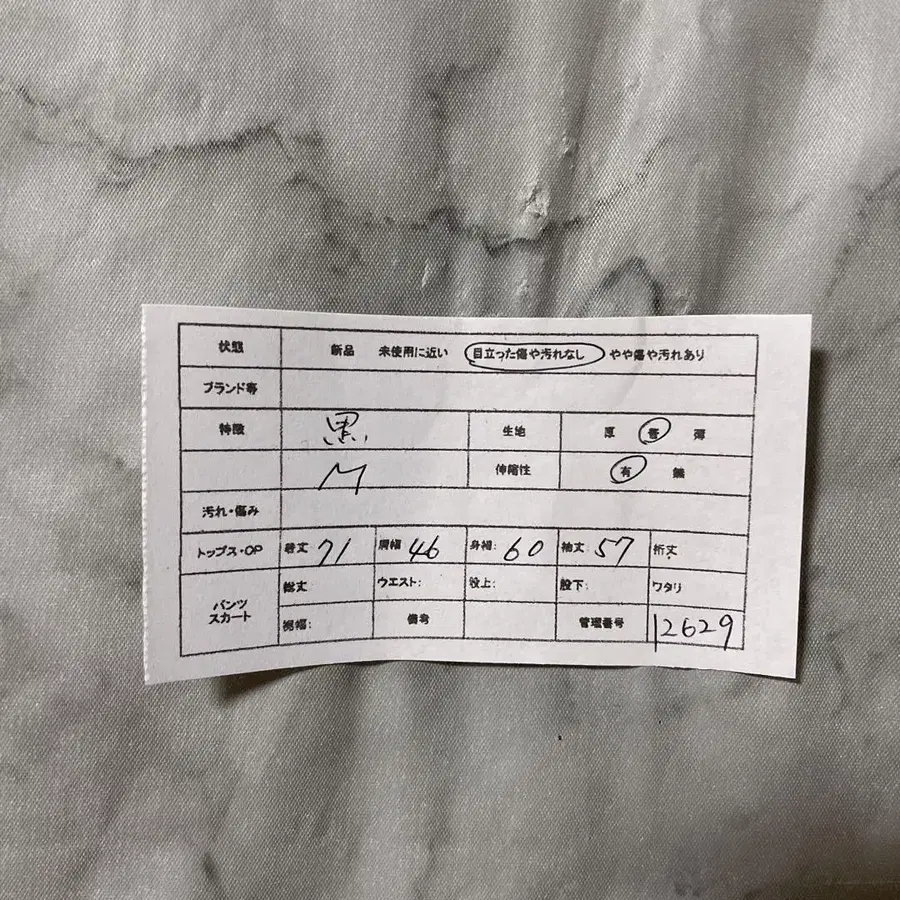 状態 新品 未使用に近い 目立った傷や汚れなし やや傷や汚れあり
ブランド等
特徴 黒 生地 厚 普 薄
M 伸縮性 有 無
汚れ・傷み
トップス・OP 着丈 71 肩幅 46 身幅: 60 袖丈: 57 裄丈
パンツ スカート 総丈: ウエスト: 股上: 股下: ワタリ
裾幅: 備考 管理番号 12629